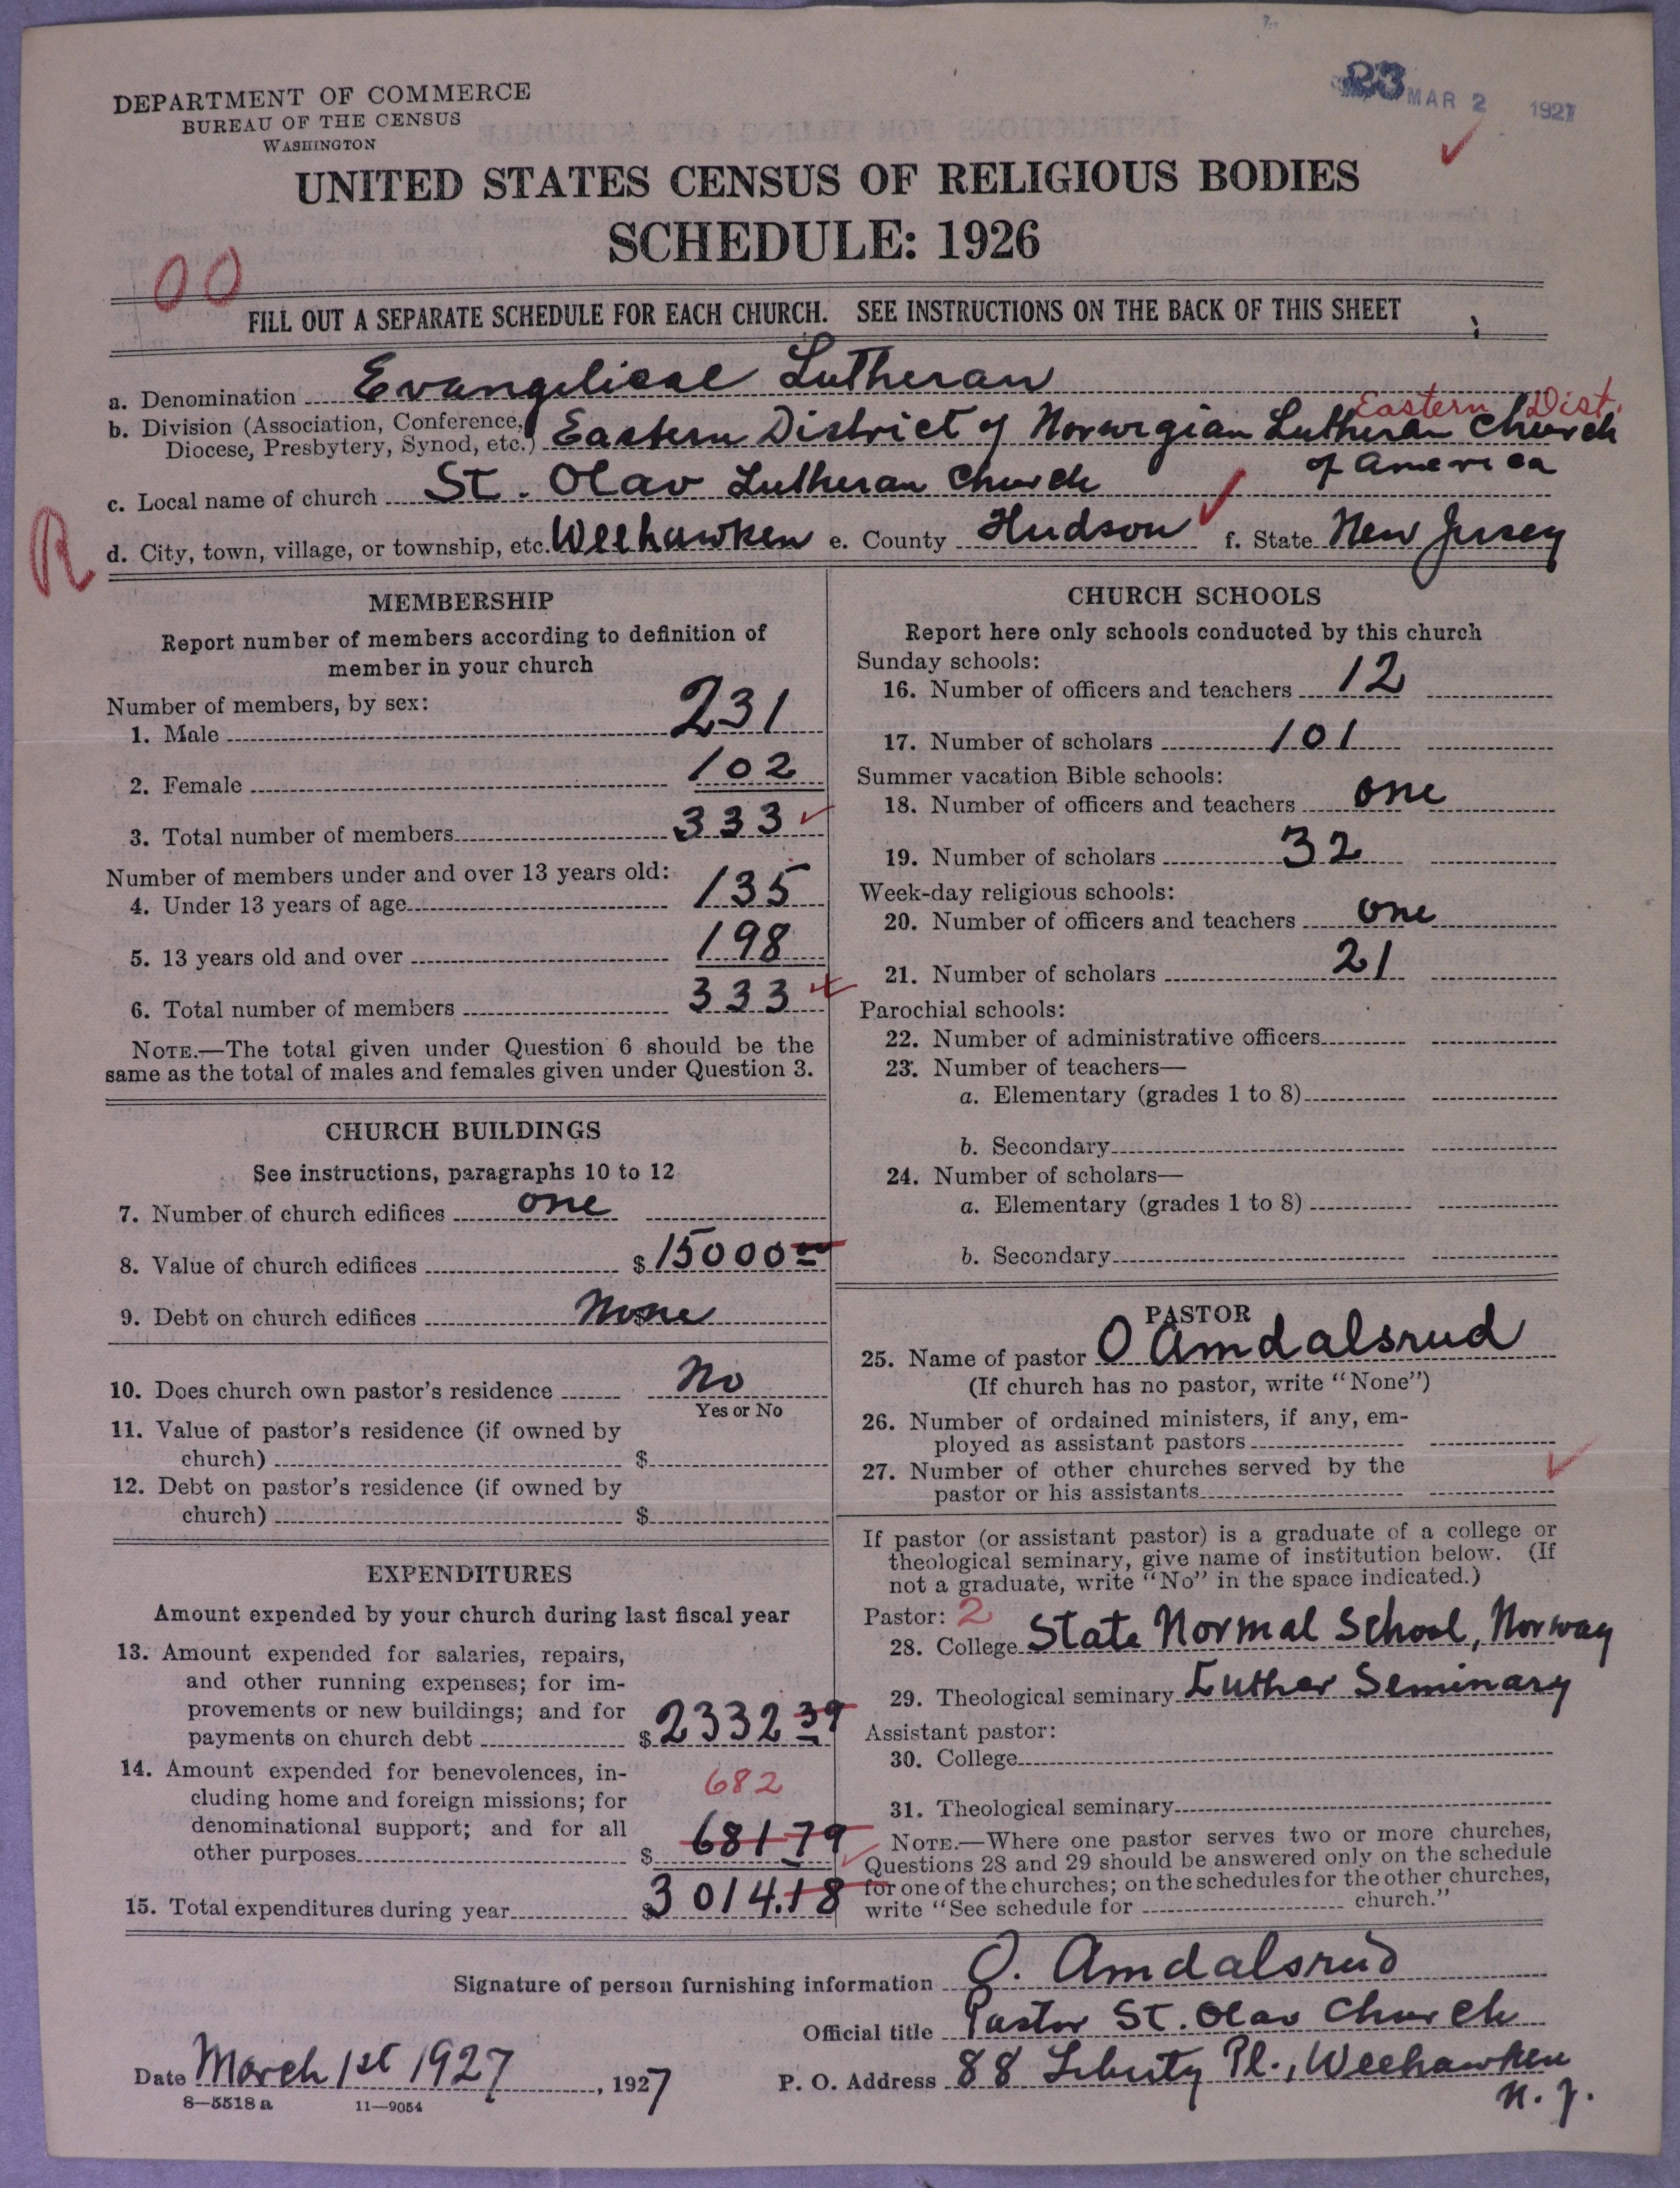 23 MAR 2 1927
DEPARTMENT OF COMMERCE
BUREAU OF THE CENSUS
WASHINGTON
UNITED STATES CENSUS OF RELIGIOUS BODIES
SCHEDULE: 1926
00
FILL OUT A SEPARATE SCHEDULE FOR EACH CHURCH. SEE INSTRUCTIONS ON THE BACK OF THIS SHEET
a. Denomination Evangelical Lutheran
Eastern Dist.
b. Division (Association, Conference,
Diocese, Presbytery, Synod, etc.) Eastern District of Norwegian Lutheran Church
of America
c. Local name of church St. Olav Lutheran Church
R
d. City, town, village, or township, etc. Weehawken e. County Hudson f. State New Jersey
MEMBERSHIP
Report number of members according to definition of
member in your church
Number of members, by sex:
1. Male 231
2. Female 102
3. Total number of members 333
Number of members under and over 13 years old:
4. Under 13 years of age 135
5. 13 years old and over 198
6. Total number of members 333
NOTE.—The total given under Question 6 should be the
same as the total of males and females given under Question 3.
CHURCH BUILDINGS
See instructions, paragraphs 10 to 12
7. Number of church edifices one
8. Value of church edifices $15000 00
9. Debt on church edifices None
10. Does church own pastor's residence No
Yes or No
11. Value of pastor's residence (if owned by
church) $
12. Debt on pastor's residence (if owned by
church) $
EXPENDITURES
Amount expended by your church during last fiscal year
13. Amount expended for salaries, repairs,
and other running expenses; for im-
provements or new buildings; and for
payments on church debt $2332 39
14. Amount expended for benevolences, in-
682
cluding home and foreign missions; for
denominational support; and for all
other purposes $ 681 79
15. Total expenditures during year $3014.18
CHURCH SCHOOLS
Report here only schools conducted by this church
Sunday schools:
16. Number of officers and teachers 12
17. Number of scholars 101
Summer vacation Bible schools:
18. Number of officers and teachers one
19. Number of scholars 32
Week-day religious schools:
20. Number of officers and teachers one
21. Number of scholars 21
Parochial schools:
22. Number of administrative officers
23. Number of teachers—
a. Elementary (grades 1 to 8)
b. Secondary
24. Number of scholars—
a. Elementary (grades 1 to 8)
b. Secondary
PASTOR
25. Name of pastor O Amdalsrud
(If church has no pastor, write "None")
26. Number of ordained ministers, if any, em-
ployed as assistant pastors
27. Number of other churches served by the
pastor or his assistants
If pastor (or assistant pastor) is a graduate of a college or
theological seminary, give name of institution below. (If
not a graduate, write "No" in the space indicated.)
Pastor: 2
28. College State Normal School, Norway
29. Theological seminary Luther Seminary
Assistant pastor:
30. College
31. Theological seminary
NOTE.—Where one pastor serves two or more churches,
Questions 28 and 29 should be answered only on the schedule
for one of the churches; on the schedules for the other churches,
write "See schedule for church."
Signature of person furnishing information O. Amdalsrud
Official title Pastor St. Olav Church
Date March 1st 1927, 1927
P. O. Address 88 Liberty Pl., Weehawken
N. J.
8—5518 a 11—9054